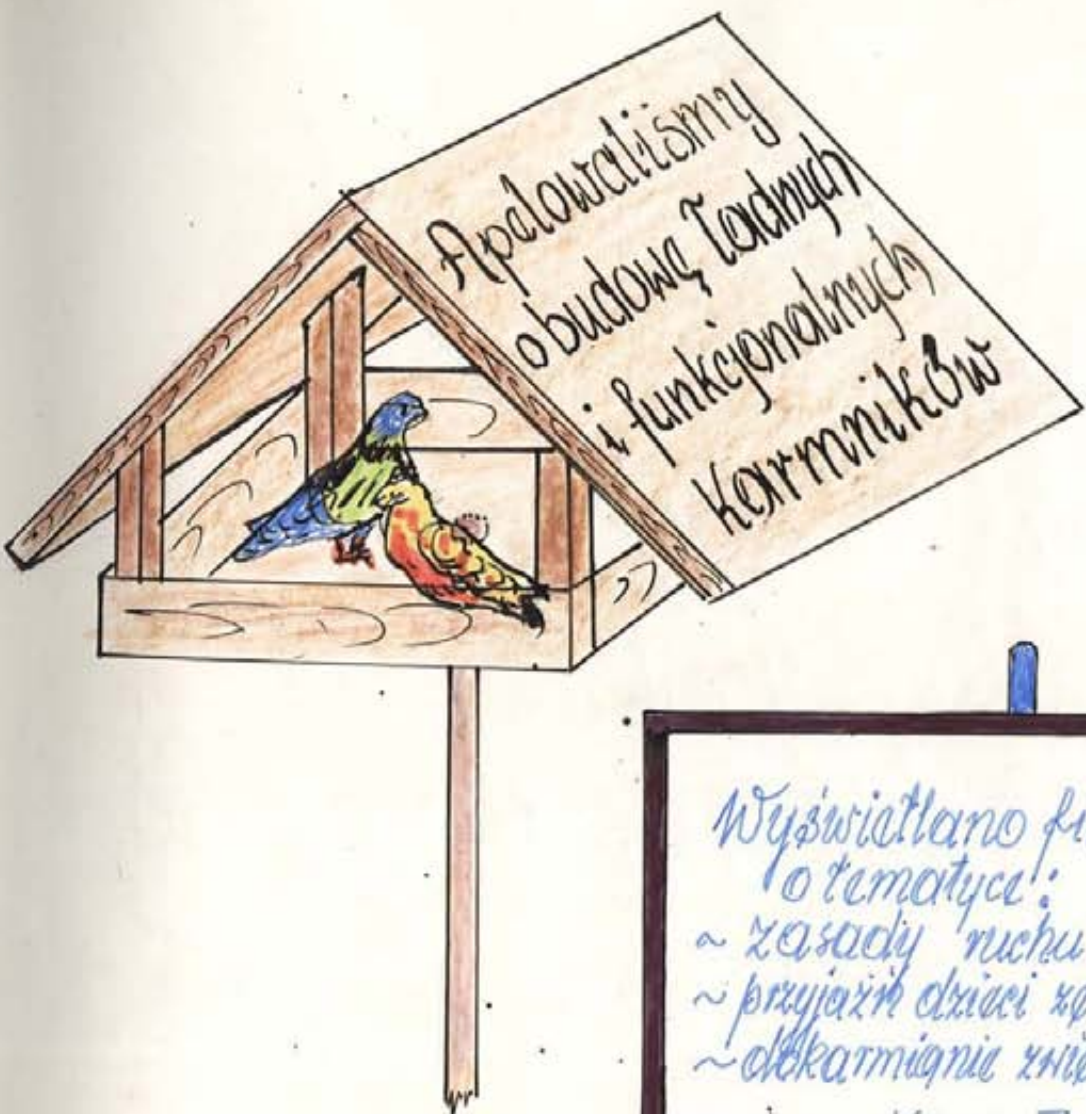 Apelowaliśmy
o budowę ładnych
i funkcjonalnych
karmników
Wyświetlano
o tematyce:
~ zasady ruchu
~ przyjaźń dzieci
~ dokarmianie